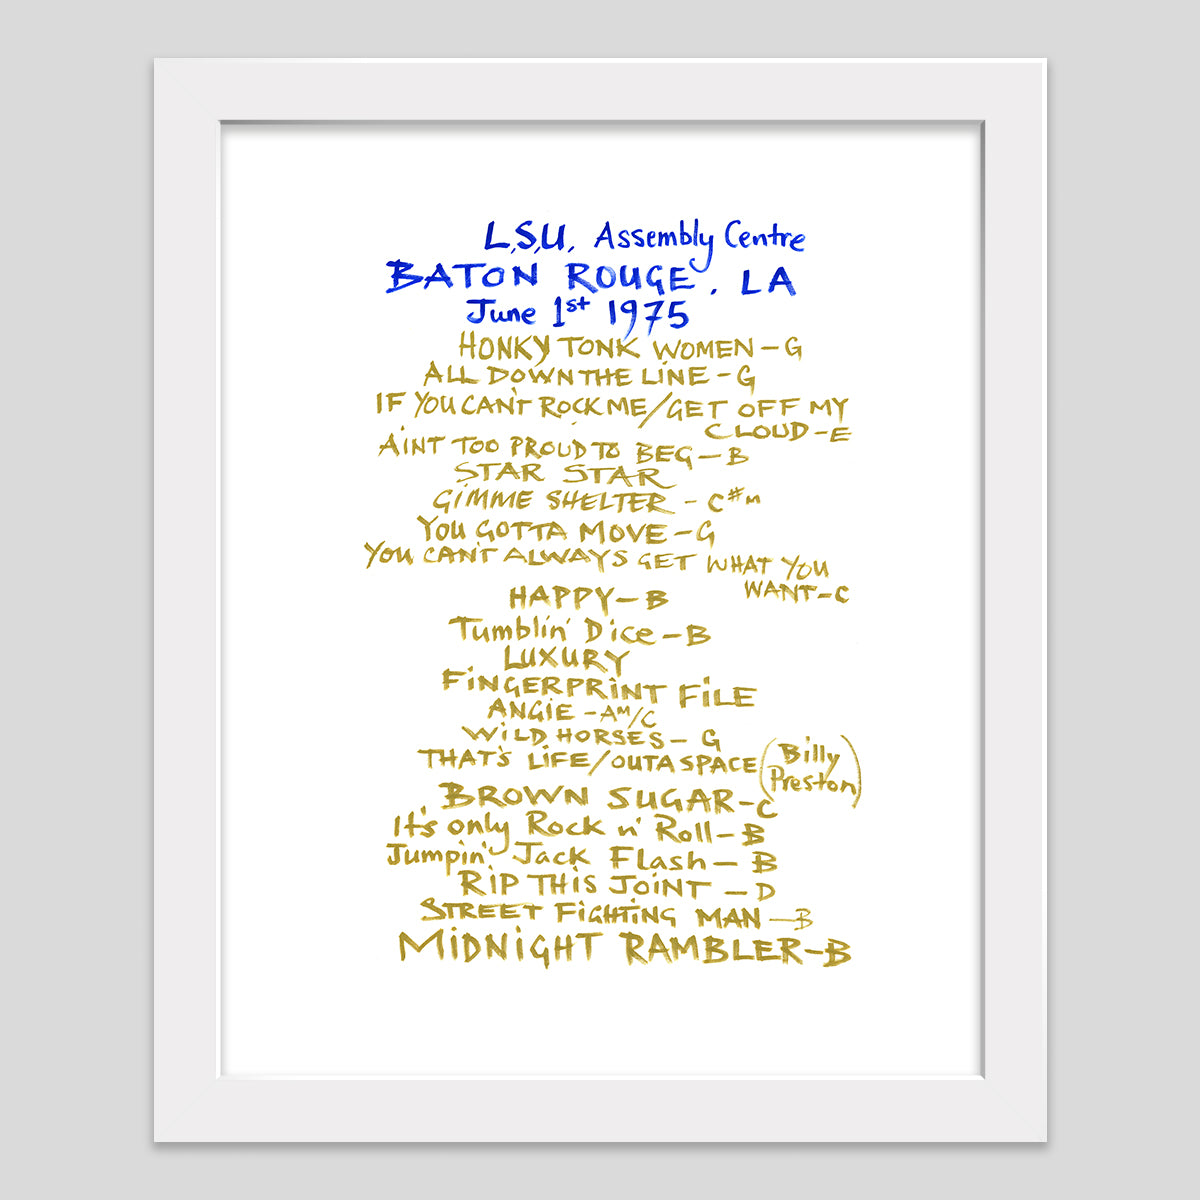 L.S.U. Assembly Centre
BATON ROUGE. LA
June 1st 1975
HONKY TONK WOMEN - G
ALL DOWN THE LINE - G
IF YOU CAN'T ROCK ME/GET OFF MY
CLOUD - E
AiNT TOO PROUD TO BEG - B
STAR STAR
GiMME SHELTER - C#m
YOU GOTTA MOVE - G
YOU CAN'T ALWAYS GET WHAT YOU
WANT - C
HAPPY - B
Tumblin' Dice - B
LUXURY
FiNGERPRiNT FiLE
ANGiE - AM/C
WiLD HORSES - G
THAT'S LiFE/OUTA SPACE (Billy
Preston)
BROWN SUGAR - C
It's only Rock n' Roll - B
Jumpin' Jack Flash - B
RiP THiS JOiNT - D
STREET FiGHTiNG MAN - B
MiDNiGHT RAMBLER - B